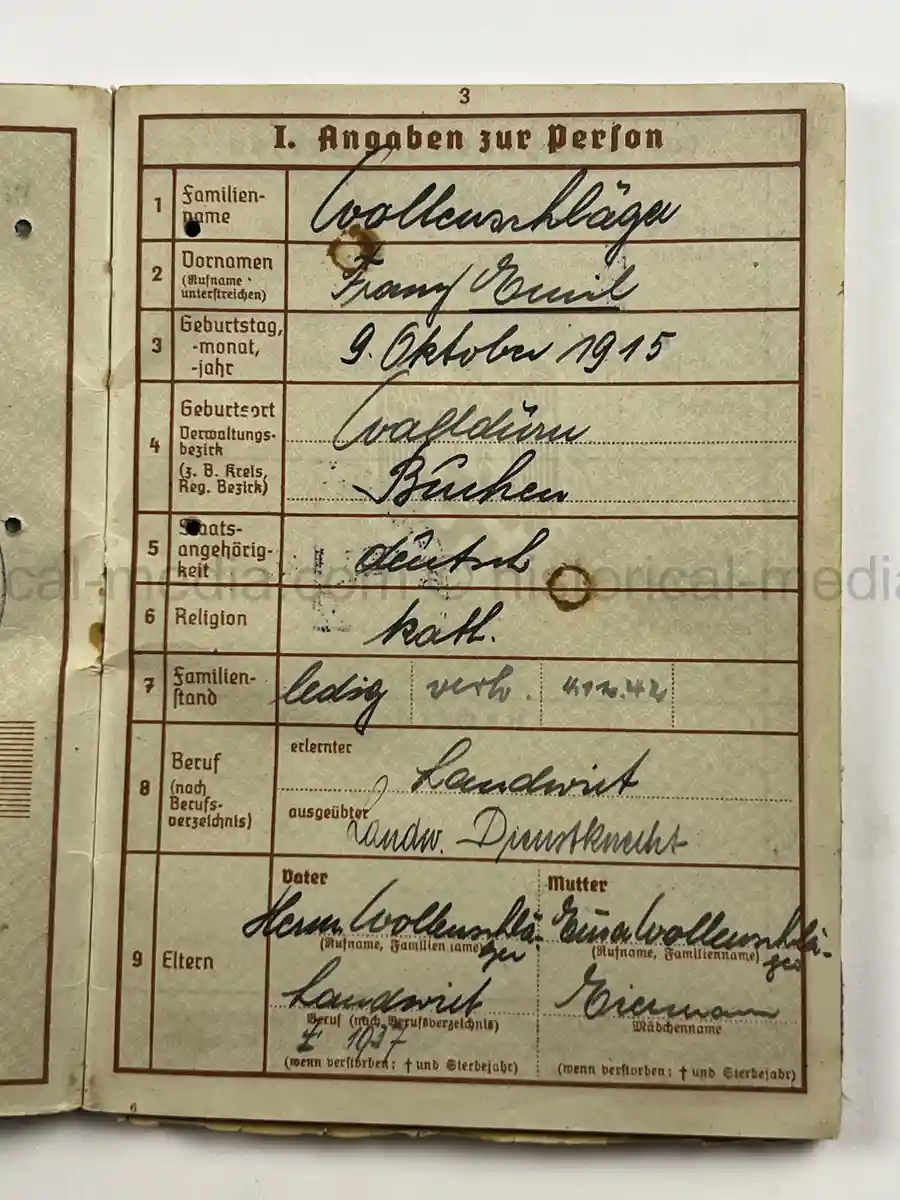 3
I. Angaben zur Person
1 Familien-
name
Wollenschläger
2 Vornamen
(Rufname
unterstreichen)
Franz Emil
3 Geburtstag,
-monat,
-jahr
9. Oktober 1915
4 Geburtsort
Verwaltungs-
bezirk
(z. B. Kreis,
Reg. Bezirk)
Walldürn
Buchen
5 Staats-
angehörig-
keit
deutsch
cal-media.com © historical-media
6 Religion
kath.
7 Familien-
stand
ledig verh.
8 Beruf
(nach
Berufs-
verzeichnis)
erlernter
Landwirt
ausgeübter
Landw. Dienstknecht
9 Eltern
Vater
Herm. Wollenschlä-
(Rufname, Familienname)
ger
Landwirt
Beruf (nach Berufsverzeichnis)
1937
(wenn verstorben: † und Sterbejahr)
Mutter
Wollenschlä-
(Rufname, Familienname)
ger
Eiermann
Mädchenname
(wenn verstorben: † und Sterbejahr)
6